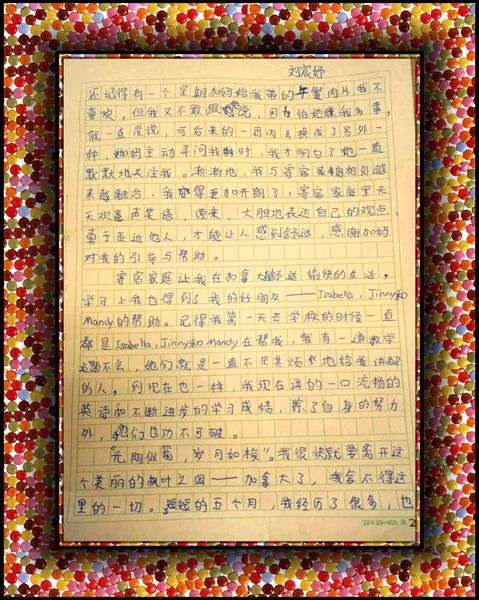 刘宸妤
还记得有一个星期加妈给我带的午餐肉片我不
喜欢，但我又不敢跟她说，因为怕她嫌我多事，
就一直没说，可后来的一周肉片换成了另外一
种，加妈主动寻问我时，我才明白了她一直
默默地关注我。渐渐地，我与寄宿家庭相处越
来越融洽，我变得更加开朗了，寄宿家庭里天
天欢声笑语，原来，大胆地表达自己的观点，
勇于走近他人，才能让人感到舒适，感谢加妈
对我的引导与帮助。
寄宿家庭让我在加拿大舒适愉快的生活。
学习上我也得到了我的好朋友——Isabella，Jinny和
Mandy的帮助。记得我第一天去学校的时候一直
都是Isabella，Jinny和Mandy在帮我，我有一道数学
题不会，她们就是一直不厌其烦地给我讲解
的人。到现在也一样，我现在讲的一口流畅的
英语和不断进步的学习成绩，除了自身的努力
外，她们也功不可破。
“光阴似箭，岁月如梭”。我很快就要离开这
个美丽的枫叶之国——加拿大了，我舍不得这
里的一切。短短的五个月，我经历了很多，也
20×20=400 2